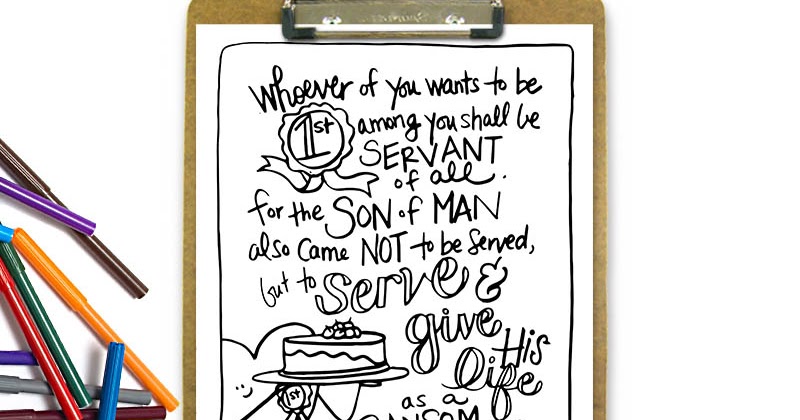 Whoever of you wants to be
1st among you shall be
SERVANT
of all.
for the SON of MAN
also came NOT to be served,
but to serve &
give His
life
1st
as a
RANSOM